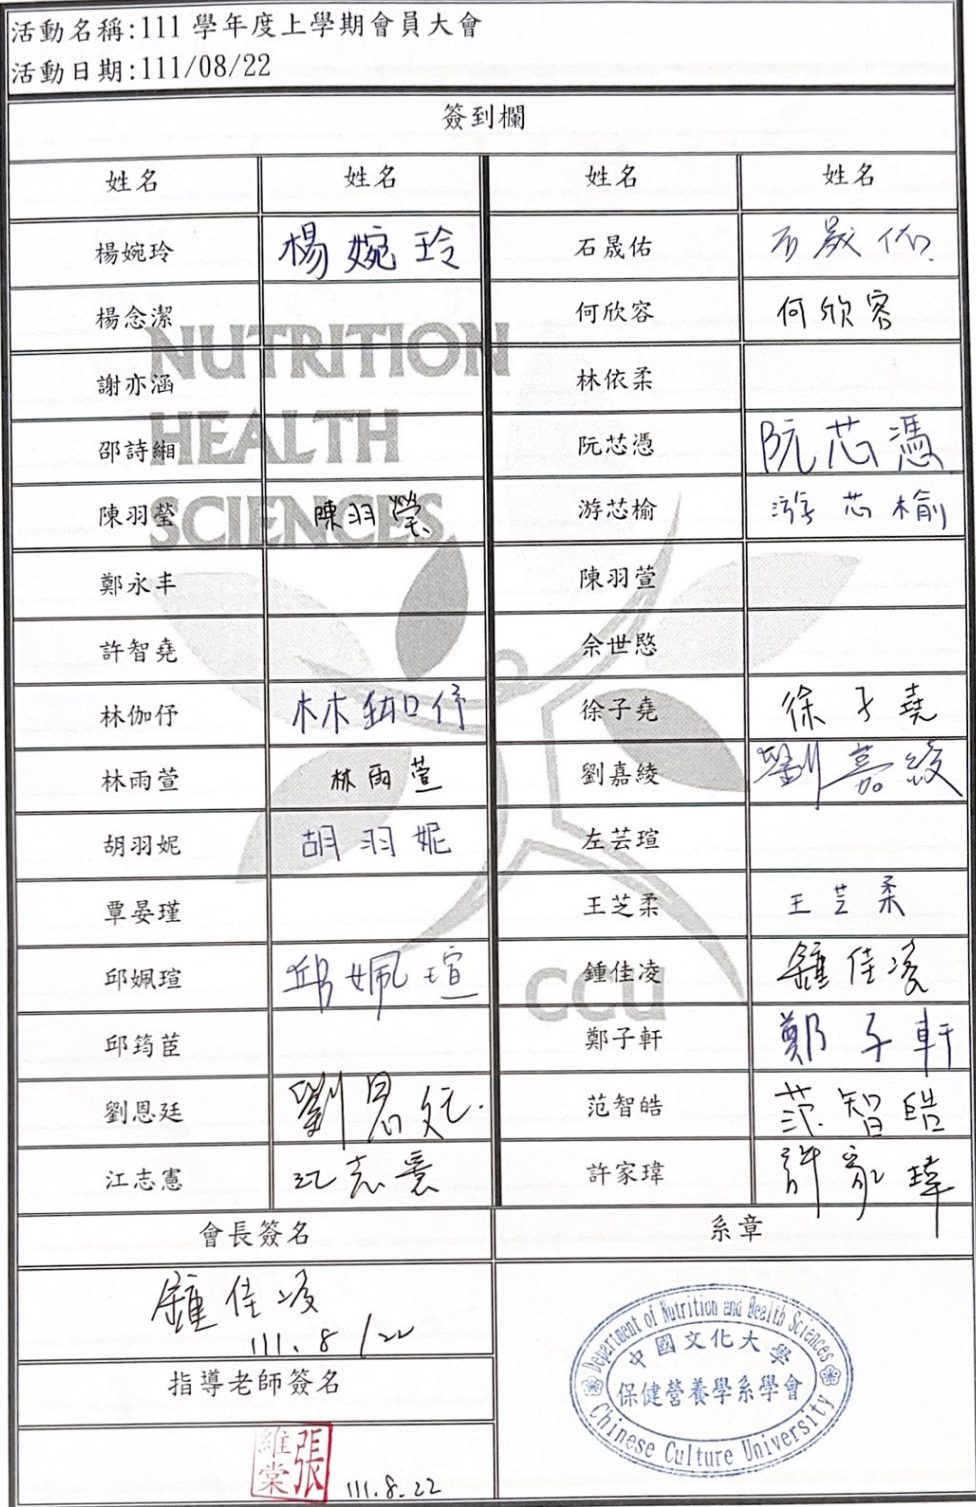 活動名稱:111 學年度上學期會員大會
活動日期:111/08/22
簽到欄
姓名 姓名 姓名 姓名
楊婉玲 楊婉玲 石晟佑 石晟佑
楊念潔 何欣容 何欣容
謝亦涵 林依柔
邵詩緗 阮芯憑 阮芯憑
陳羽瑩 陳羽瑩 游芯榆 游芯榆
鄭永丰 陳羽萱
許智堯 余世愍
林伽伃 林伽伃 徐子堯 徐子堯
林雨萱 林雨萱 劉嘉綾 劉嘉綾
胡羽妮 胡羽妮 左芸瑄
覃晏瑾 王芝柔 王芝柔
邱姵瑄 邱姵瑄 鍾佳凌 鍾佳凌
邱筠茝 鄭子軒 鄭子軒
劉恩廷 劉恩廷 范智皓 范智皓
江志憲 江志憲 許家瑋 許家瑋
NUTRITION
HEALTH
SCIENCES
CCU
會長簽名 系章
鍾佳凌
111.8/22
指導老師簽名
張維棠
111.8.22
Department of Nutrition and Health Sciences
中國文化大學
保健營養學系學會
Chinese Culture University